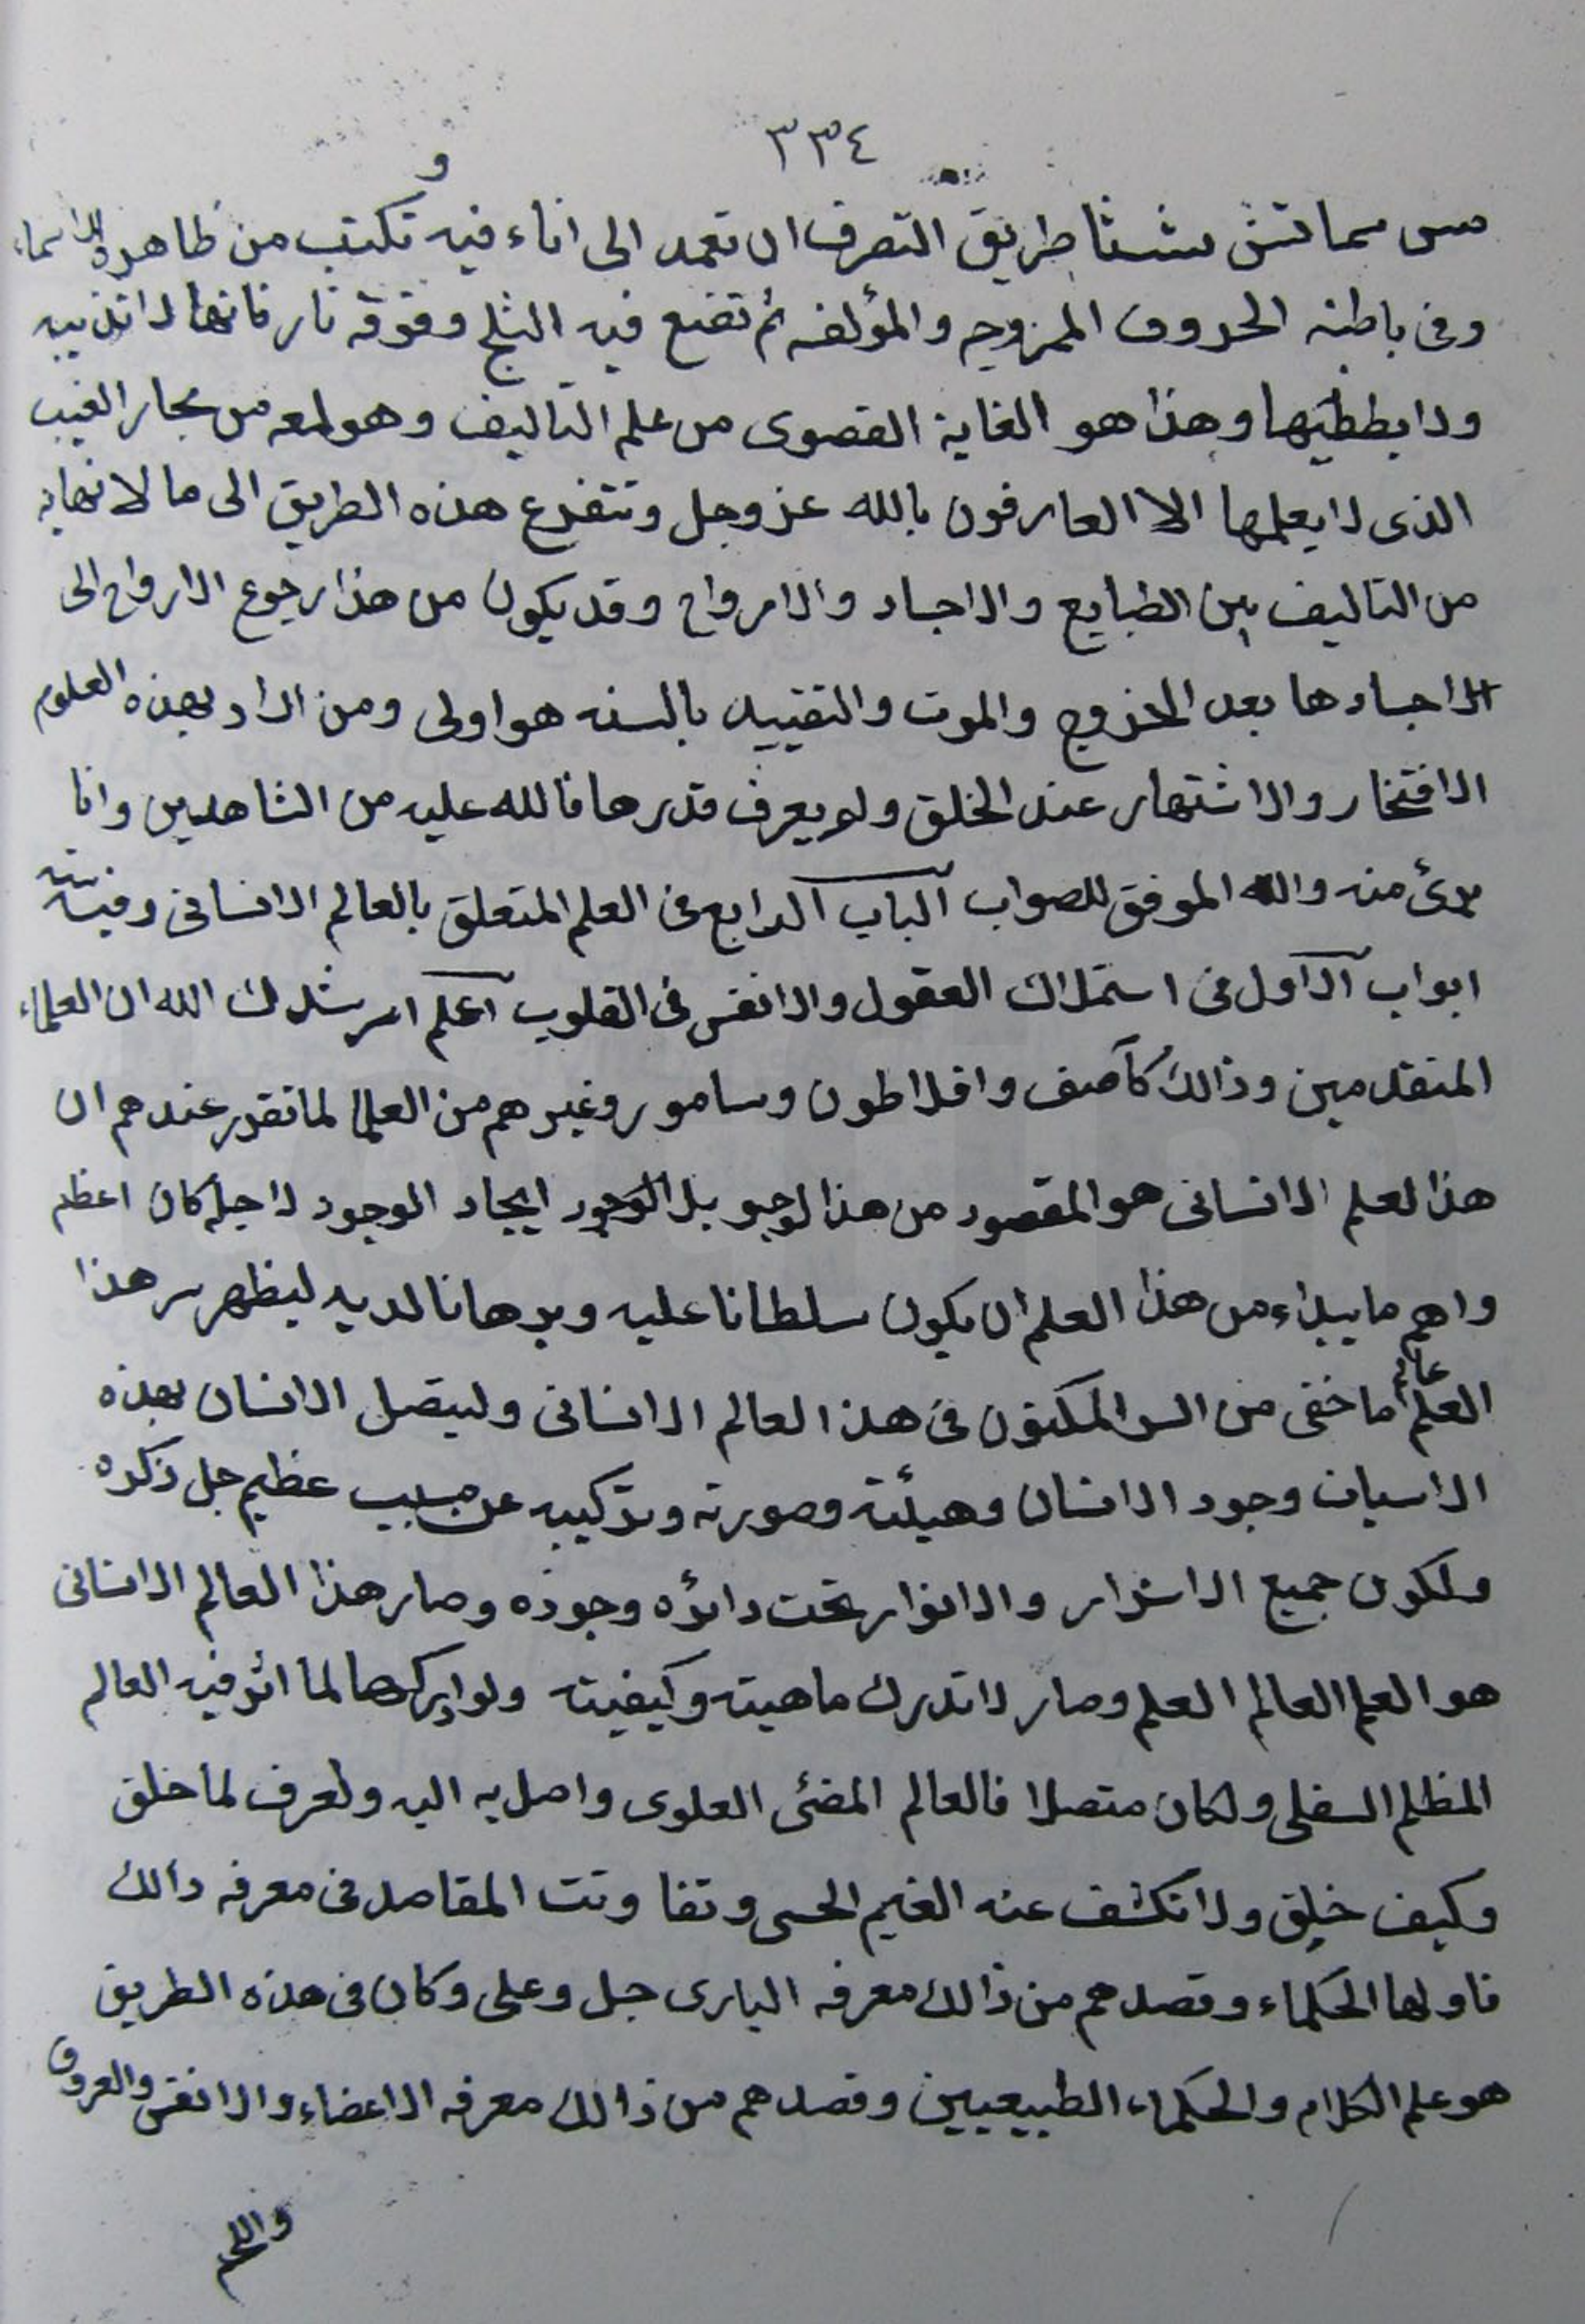 ٣٣٤
و
طريق التصرف ان تعمد الى اناء فيه تكتب من ظاهره الاسماء
وفى باطنه الحروف الممزوجه والمؤلفه ثم تضع فيه الثلج وفوقه نار فانها لا تذيبه
ولا يطفيها وهذا هو الغاية القصوى من علم التاليف وهو لمعه من بحار الغيب
الذى لا يعلمها الا العارفون بالله عز وجل وتتفرع هذه الطريق الى ما لا نهايه
من التاليف بين الطبايع والاجساد والارواح وقد يكون من هذا رجوع الارواح الى
اجسادها بعد الخروج والموت والتقييد بالسنه هو اولى ومن اراد بهذه العلوم
الافتخار والاشتهار عند الخلق ولم يعرف قدرها فالله عليه من الشاهدين وانا
برئ منه والله الموفق للصواب الباب الرابع فى العلم المتعلق بالعالم الانسانى وفيه
ابواب الاول فى استملاك العقول والانفس فى القلوب اعلم ارشدك الله ان العلماء
المتقدمين وذالك كآصف وافلاطون وسامور وغيرهم من العلما لما تقرر عندهم ان
هذا لعلم الانسانى هو المقصود من هذا لوجو بل الوجود ايجاد الوجود لاجله كان اعظم
واهم ما يبداء من هذا العلم ان يكون سلطانا عليه وبرهانا لديه ليظهر سر هذا
العلم عالم ما خفى من السر المكنون فى هذا العالم الانسانى وليتصل الانسان بهذه
الاسباب وجود الانسان وهيئته وصورته وتركيبه عن مسبب عظيم جل ذكره
ولكون جميع الاسرار والانوار تحت دائره وجوده وصار هذا العالم الانسانى
هو العلم العالم العلم وصار لا تدرك ماهيته وكيفيته ولو ادركها لما اثر فيه العالم
المظلم السفلى ولكان متصلا فالعالم المضئى العلوى واصل به اليه ولعرف لما خلق
وكيف خلق ولانكشف عنه الغيم الحسى وتفاوتت المقاصد فى معرفه دالك
فاولها الحكماء وقصدهم من ذالك معرفه البارى جل وعلى وكان فى هذه الطريق
هو علم الكلام والحكماء الطبيعيين وقصدهم من ذالك معرفه الاعضاء والانفس والعروق
واللحم